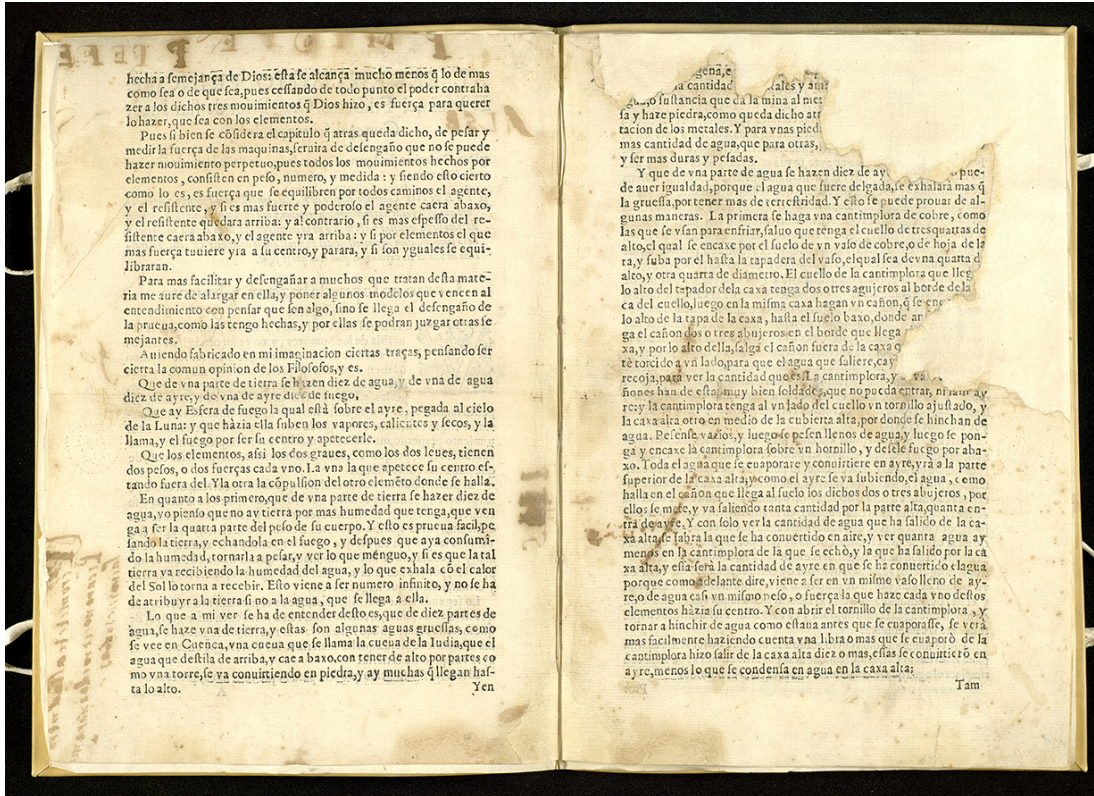 hecha a semejança de Dios: esta se alcança mucho menos q̃ lo de mas
como sea o de que sea, pues cessando de todo punto el poder contraha
zer a los dichos tres mouimientos q̃ Dios hizo, es fuerça para querer
lo hazer, que sea con los elementos.
Pues si bien se cõsidera el capitulo q̃ atras queda dicho, de pesar y
medir la fuerça de las maquinas, seruira de desengaño que no se puede
hazer mouimiento perpetuo, pues todos los mouimientos hechos por
elementos, consisten en peso, numero, y medida: y siendo esto cierto
como lo es, es fuerça que se equilibren por todos caminos el agente,
y el resistente, y si es mas fuerte y poderoso el agente caera abaxo,
y el resistente quedara arriba: y al contrario, si es mas espesso del re-
sistente caera abaxo, y el agente yra arriba: y si por elementos el que
mas fuerça tuuiere yra a su centro, y parara, y si son yguales se equi-
libraran.
Para mas facilitar y desengañar a muchos que tratan desta mate-
ria me aure de alargar en ella, y poner algunos modelos que vencen al
entendimiento con pensar que son algo, sino se llega el desengaño de
la prueua, como las tengo hechas, y por ellas se podran juzgar otras se
mejantes.
Auiendo fabricado en mi imaginacion ciertas traças, pensando ser
cierta la comun opinion de los Filosofos, y es.
Que de vna parte de tierra se hazen diez de agua, y de vna de agua
diez de ayre, y de vna de ayre diez de fuego,
Que ay Esfera de fuego la qual està sobre el ayre, pegada al cielo
de la Luna: y que hàzia ella suben los vapores, calientes y secos, y la
llama, y el fuego por ser su centro y apetecerle.
Que los elementos, assi los dos graues, como los dos leues, tienen
dos pesos, o dos fuerças cada vno. La vna la que apetece su centro es-
tando fuera del. Y la otra la cõpulsion del otro elemẽto donde se halla.
En quanto a los primero, que de vna parte de tierra se hazer diez de
agua, yo pienso que no ay tierra por mas humedad que tenga, que ven
ga a ser la quarta parte del peso de su cuerpo. Y esto es prueua facil, pe
sando la tierra, y echandola en el fuego, y despues que aya consumi-
do la humedad, tornarla a pesar, y ver lo que menguo, y si es que la tal
tierra va recibiendo la humedad del agua, y lo que exhala cõ el calor
del Sol lo torna a recebir. Esto viene a ser numero infinito, y no se ha
de atribuyr a la tierra si no a la agua, que se llega a ella.
Lo que a mi ver se ha de entender desto es, que de diez partes de
agua, se haze vna de tierra, y estas son algunas aguas gruessas, como
se vee en Cueñca, vna cueua que se llama la cueua de la Iudia, que el
agua que destila de arriba, y cae a baxo, con tener de alto por partes co
mo vna torre, se va conuirtiendo en piedra, y ay muchas q̃ llegan has-
ta lo alto.
Yen
gena, e
na cantidad
tales y
o sustancia que da la mina al
sa y haze piedra, como queda dicho
tacion de los metales. Y para vnas
mas cantidad de agua, que para otras,
y ser mas duras y pesadas.
Y que de vna parte de agua se hazen diez de pue-
de auer igualdad, porque el agua que fuere delgada, se exhalarà mas q̃
la gruessa, por tener mas de terrestridad. Y esto se puede prouar de al-
gunas maneras. La primera se haga vna cantimplora de cobre, como
las que se vsan para enfriar, saluo que tenga el cuello de tres quartas de
alto, el qual se encaxe por el suelo de vn vaso de cobre, o de hoja de la
ta, y suba por el hasta la tapadera del vaso, el qual sea de vna quarta d
alto, y otra quarta de diametro. El cuello de la cantimplora que
lo alto del tapador de la caxa tenga dos o tres agujeros al borde de la
ca del cuello, luego en la misma caxa hagan vn cañon, q̃ se
lo alto de la tapa de la caxa, hasta el suelo baxo, donde
ga el cañon dos o tres abujeros en el borde que llega
xa, y por lo alto della, salga el cañon fuera de la caxa
tè torcido a vn lado, para que el agua que saliere,
recoja, para ver la cantidad que es. La cantimplora, y
ñones han de estar muy bien soldados, que no pueda entrar, ni salir ay
re: y la cantimplora tenga al vn lado del cuello vn tornillo ajustado, y
la caxa alta otro en medio de la cubierta alta, por donde se hinchan de
agua. Pesense vazios, y luego se pesen llenos de agua, y luego se pon-
ga y encaxe la cantimplora sobre vn hornillo, y desele fuego por aba-
xo. Toda el agua que se euaporare y conuirtiere en ayre, yrà a la parte
superior de la caxa alta, y como el ayre se va subiendo, el agua, como
halla en el cañon que llega al suelo los dichos dos o tres abujeros, por
ellos se mete, y va saliendo tanta cantidad por la parte alta, quanta en-
trà de ayre. Y con solo ver la cantidad de agua que ha salido de la ca-
xa alta, se sabra la que se ha conuertido en aire, y ver quanta agua ay
menos en la cantimplora de la que se echò, y la que ha salido por la ca
xa alta, y essa serà la cantidad de ayre en que se ha conuertido el agua
porque como adelante dire, viene a ser en vn mismo vaso lleno de ay-
re, o de agua casi vn mismo peso, o fuerça la que haze cada vno destos
elementos hàzia su centro. Y con abrir el tornillo de la cantimplora, y
tornar a hinchir de agua como estaua antes que se euaporasse, se verà
mas facilmente haziendo cuenta vna libra o mas que se euaporò de la
cantimplora hizo salir de la caxa alta diez o mas, essas se conuirtierõ en
ayre, menos lo que se condensa en agua en la caxa alta;
Tam